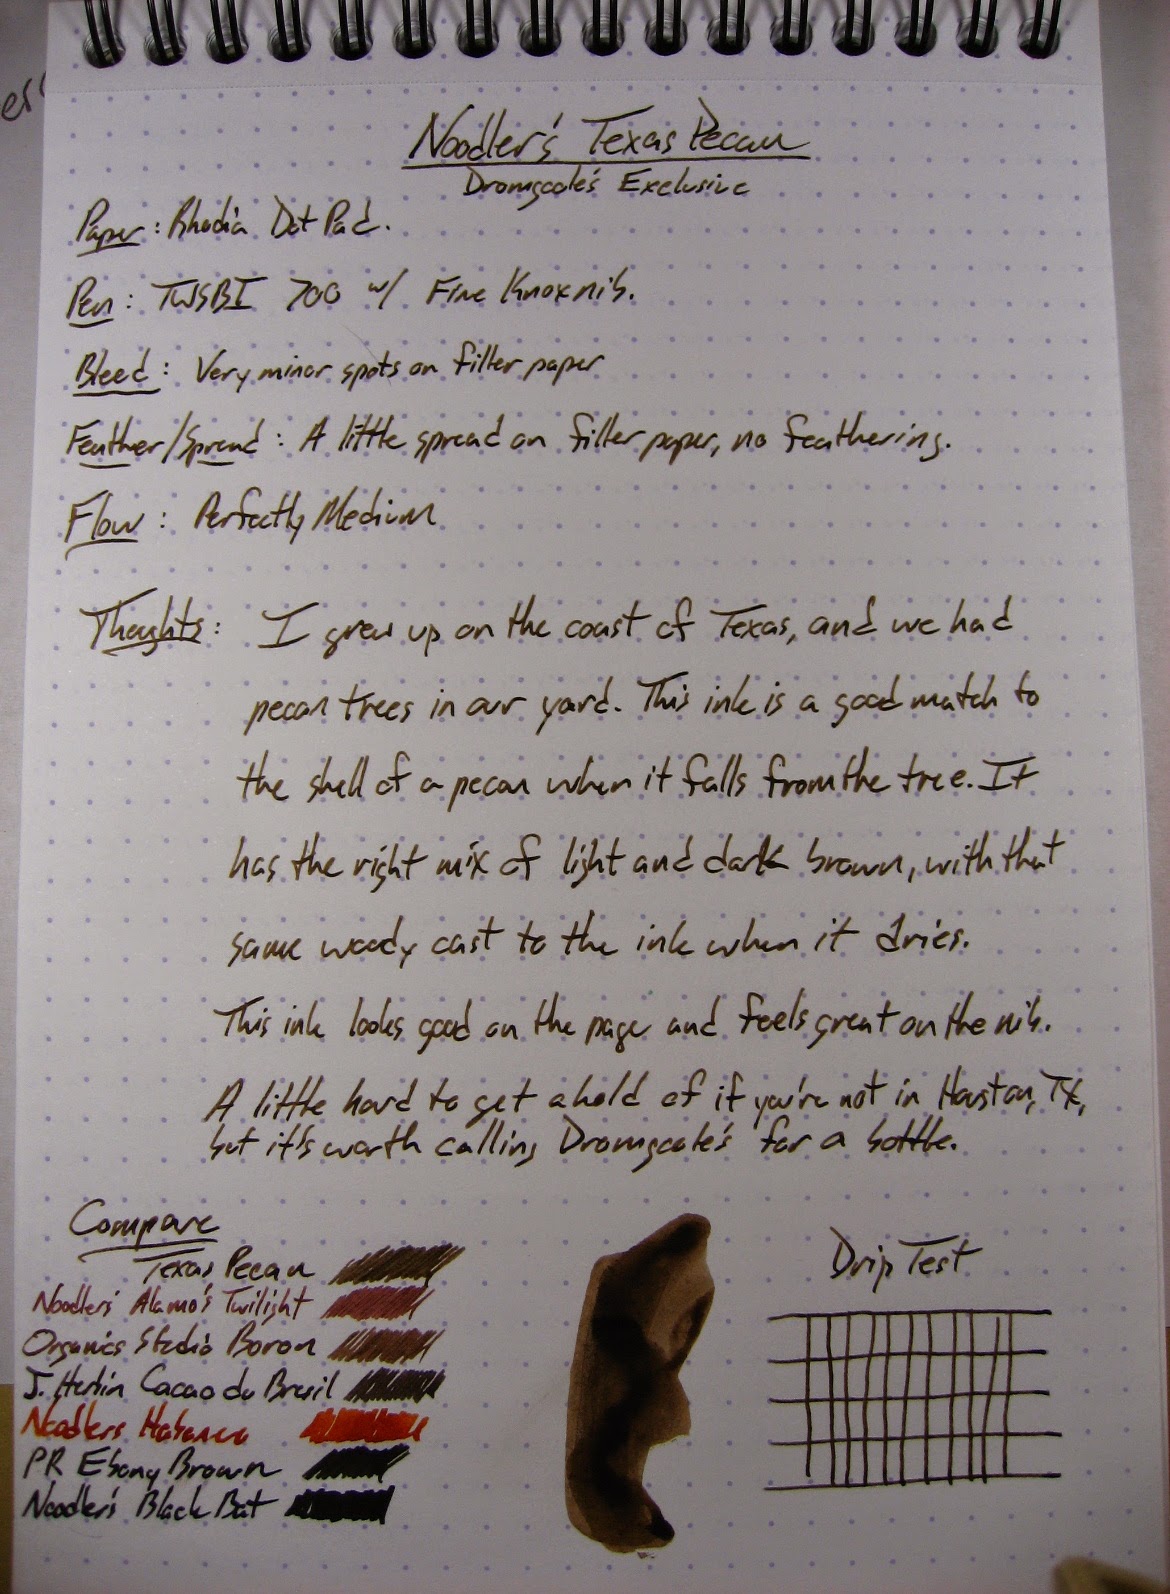 Noodler's Texas Pecan
Dromgoole's Exclusive
Paper: Rhodia Dot Pad.
Pen: TWSBI 700 w/ Fine Knox nib.
Bleed: Very minor spots on filler paper
Feather/Spread: A little spread on filler paper, no feathering.
Flow: Perfectly Medium
Thoughts: I grew up on the coast of Texas, and we had
pecan trees in our yard. This ink is a good match to
the shell of a pecan when it falls from the tree. It
has the right mix of light and dark brown, with that
same woody cast to the ink when it dries.
This ink looks good on the page and feels great on the nib.
A little hard to get ahold of if you're not in Houston, TX,
but it's worth calling Dromgoole's for a bottle.
Compare
Texas Pecan
Noodlers' Alamo's Twilight
Organics Studio Boron
J. Herbin Cacao du Bresil
Noodlers Habanero
PR Ebony Brown
Noodler's Black Bat
Drip Test